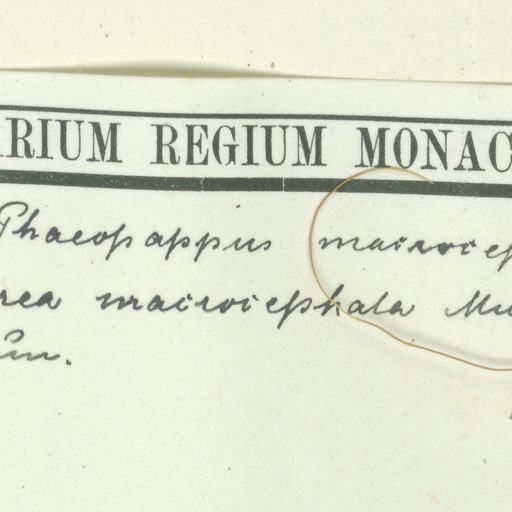 ARIUM REGIUM MONAC
Phaeopappus macrocep
rea macrocephala Mu